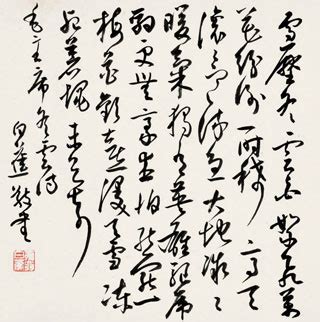 雪壓冬雲白絮飛萬
花紛謝一時稀高天
滾滾寒流急大地微微
暖氣吹獨有英雄驅虎
豹更無豪傑怕熊羆
梅花歡喜漫天雪凍
死蒼蠅未足奇
毛主席冬雲詩
白蕉敬書